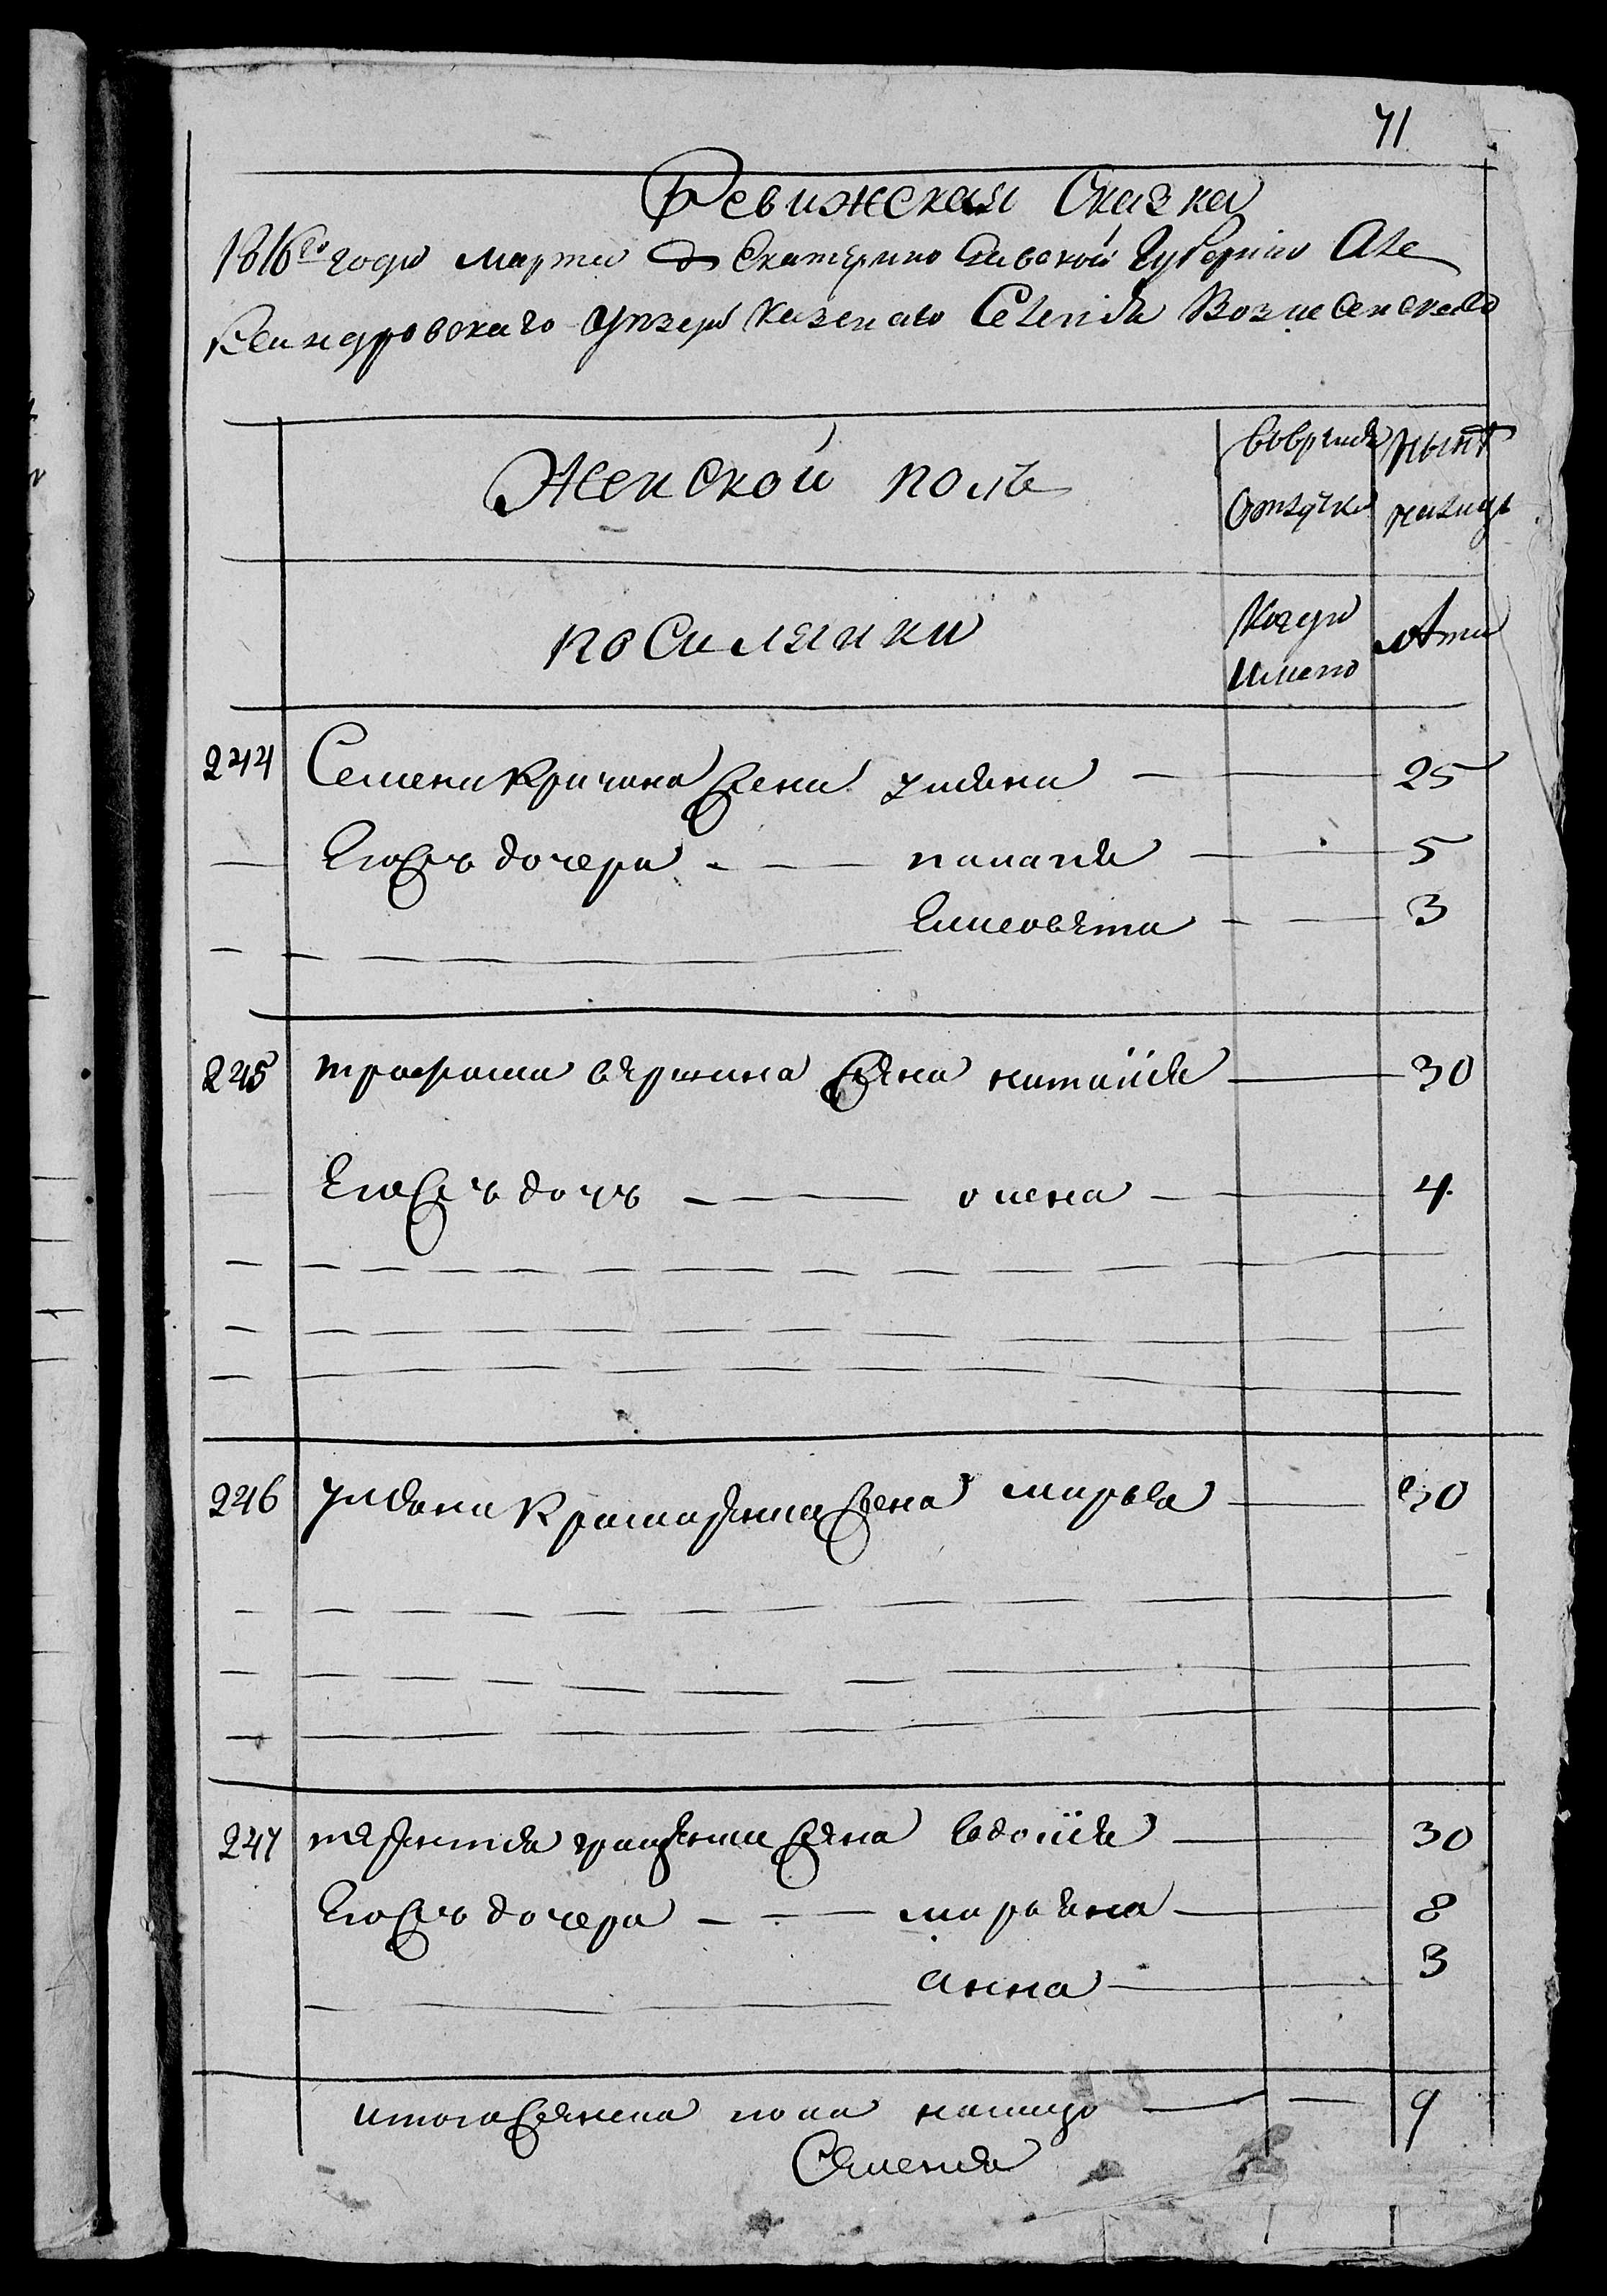 71
Ревижская Сказка
1816го года марта Екатерино Славской Губернiи Але
ксандровского уезда казенаго Селенiя Вознесенскаго
Женской полъ
вовремя
Отлучки
ныне
налицо
поселянки
Когда
имено
лета
244 Семена Кричина жена улияна — 25
Егожъ дочери — палагия — 5
Елисовета — 3
245 трофима жена наталия — 30
Егожъ дочъ — олена — 4
246 улияна жена марьва — 30
247 терентия жена евдокия — 30
Егожъ дочери — марияна — 8
анна — 3
итога женска пола налицо — 9